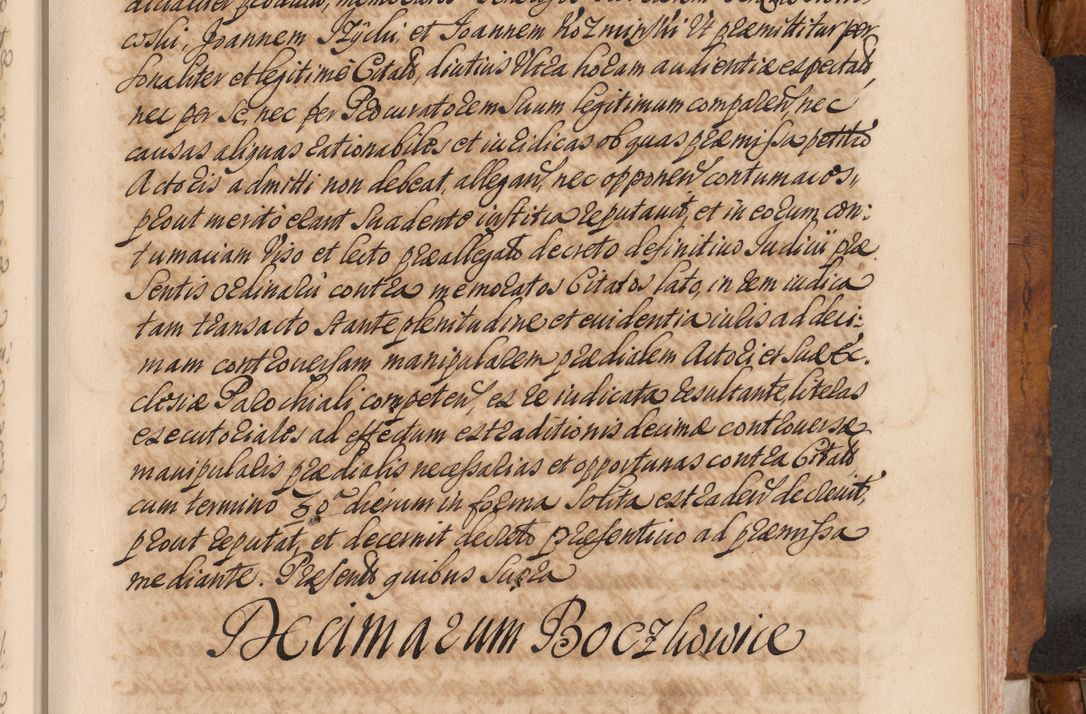 coski, Joannem Szÿchi, et Joannem Kozminshi Ut præmittitur per
sonaliter et legitime Citatos, diutius Ultra horam audientiæ expectatos,
nec per Se, nec per Procuratorem Suum legitimum comparen, nec
causas aliquas rationabiles et iuridicas ob quas præmissa petitio
Actoris admitti non debeat, allegan, nec opponen contumaces,
prout merito erant Suadente iustitia reputavit, et in eorum con:
tumaciam Viso et lecto præallegato decreto definitivo Iudicii præ
Sentis ordinarii contra memoratos Citatos lato, in rem iudica
tam transacto Stante plenitudine et evidentia iuris ad deci:
mam controversam manipularem prædialem Actori et Suæ Ec:
clesiæ Parochiali, competen, ex re iudicata resultante, literas
executoriales ad effectum extraditionis decimæ controversæ
manipularis prædialis necessarias et opportunas contra Citatos
cum termino 30 dierum in forma Solita extraden decrevit,
prout reputat, et decernit decreto præsentivo ad præmissa
mediante. Præsentibus quibus Supra
Decimarum Boczkowice